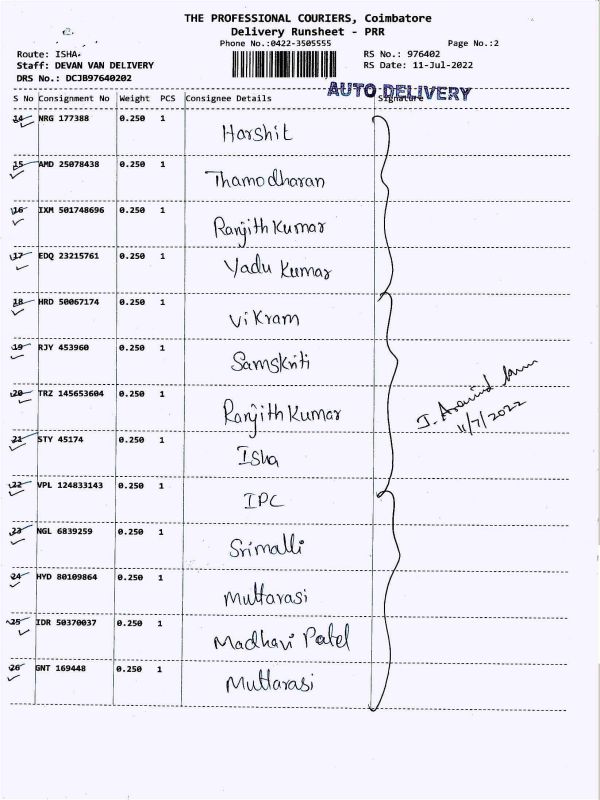 THE PROFESSIONAL COURIERS, Coimbatore
Delivery Runsheet - PRR
Phone No.:0422-3505555 Page No.:2
Route: ISHA. RS No.: 976402
Staff: DEVAN VAN DELIVERY RS Date: 11-Jul-2022
DRS No.: DCJB97640202
AUTO DELIVERY
S No Consignment No Weight PCS Consignee Details Signature
14 NRG 177388 0.250 1 Harshit
15 AMD 25078438 0.250 1 Thamodharan
16 IXM 501748696 0.250 1 Ranjith Kumar
17 EDQ 23215761 0.250 1 Yadu Kumar
18 HRD 50067174 0.250 1 Vikram
19 RJY 453960 0.250 1 Samskriti
20 TRZ 145653604 0.250 1 Ranjith Kumar
J. Aravind
11/7/2022
21 STY 45174 0.250 1 Isha
22 VPL 124833143 0.250 1 IPC
23 NGL 6839259 0.250 1 Srimalli
24 HYD 80109864 0.250 1 Muttarasi
25 IDR 50370037 0.250 1 Madhavi Patel
26 GNT 169448 0.250 1 Muttarasi